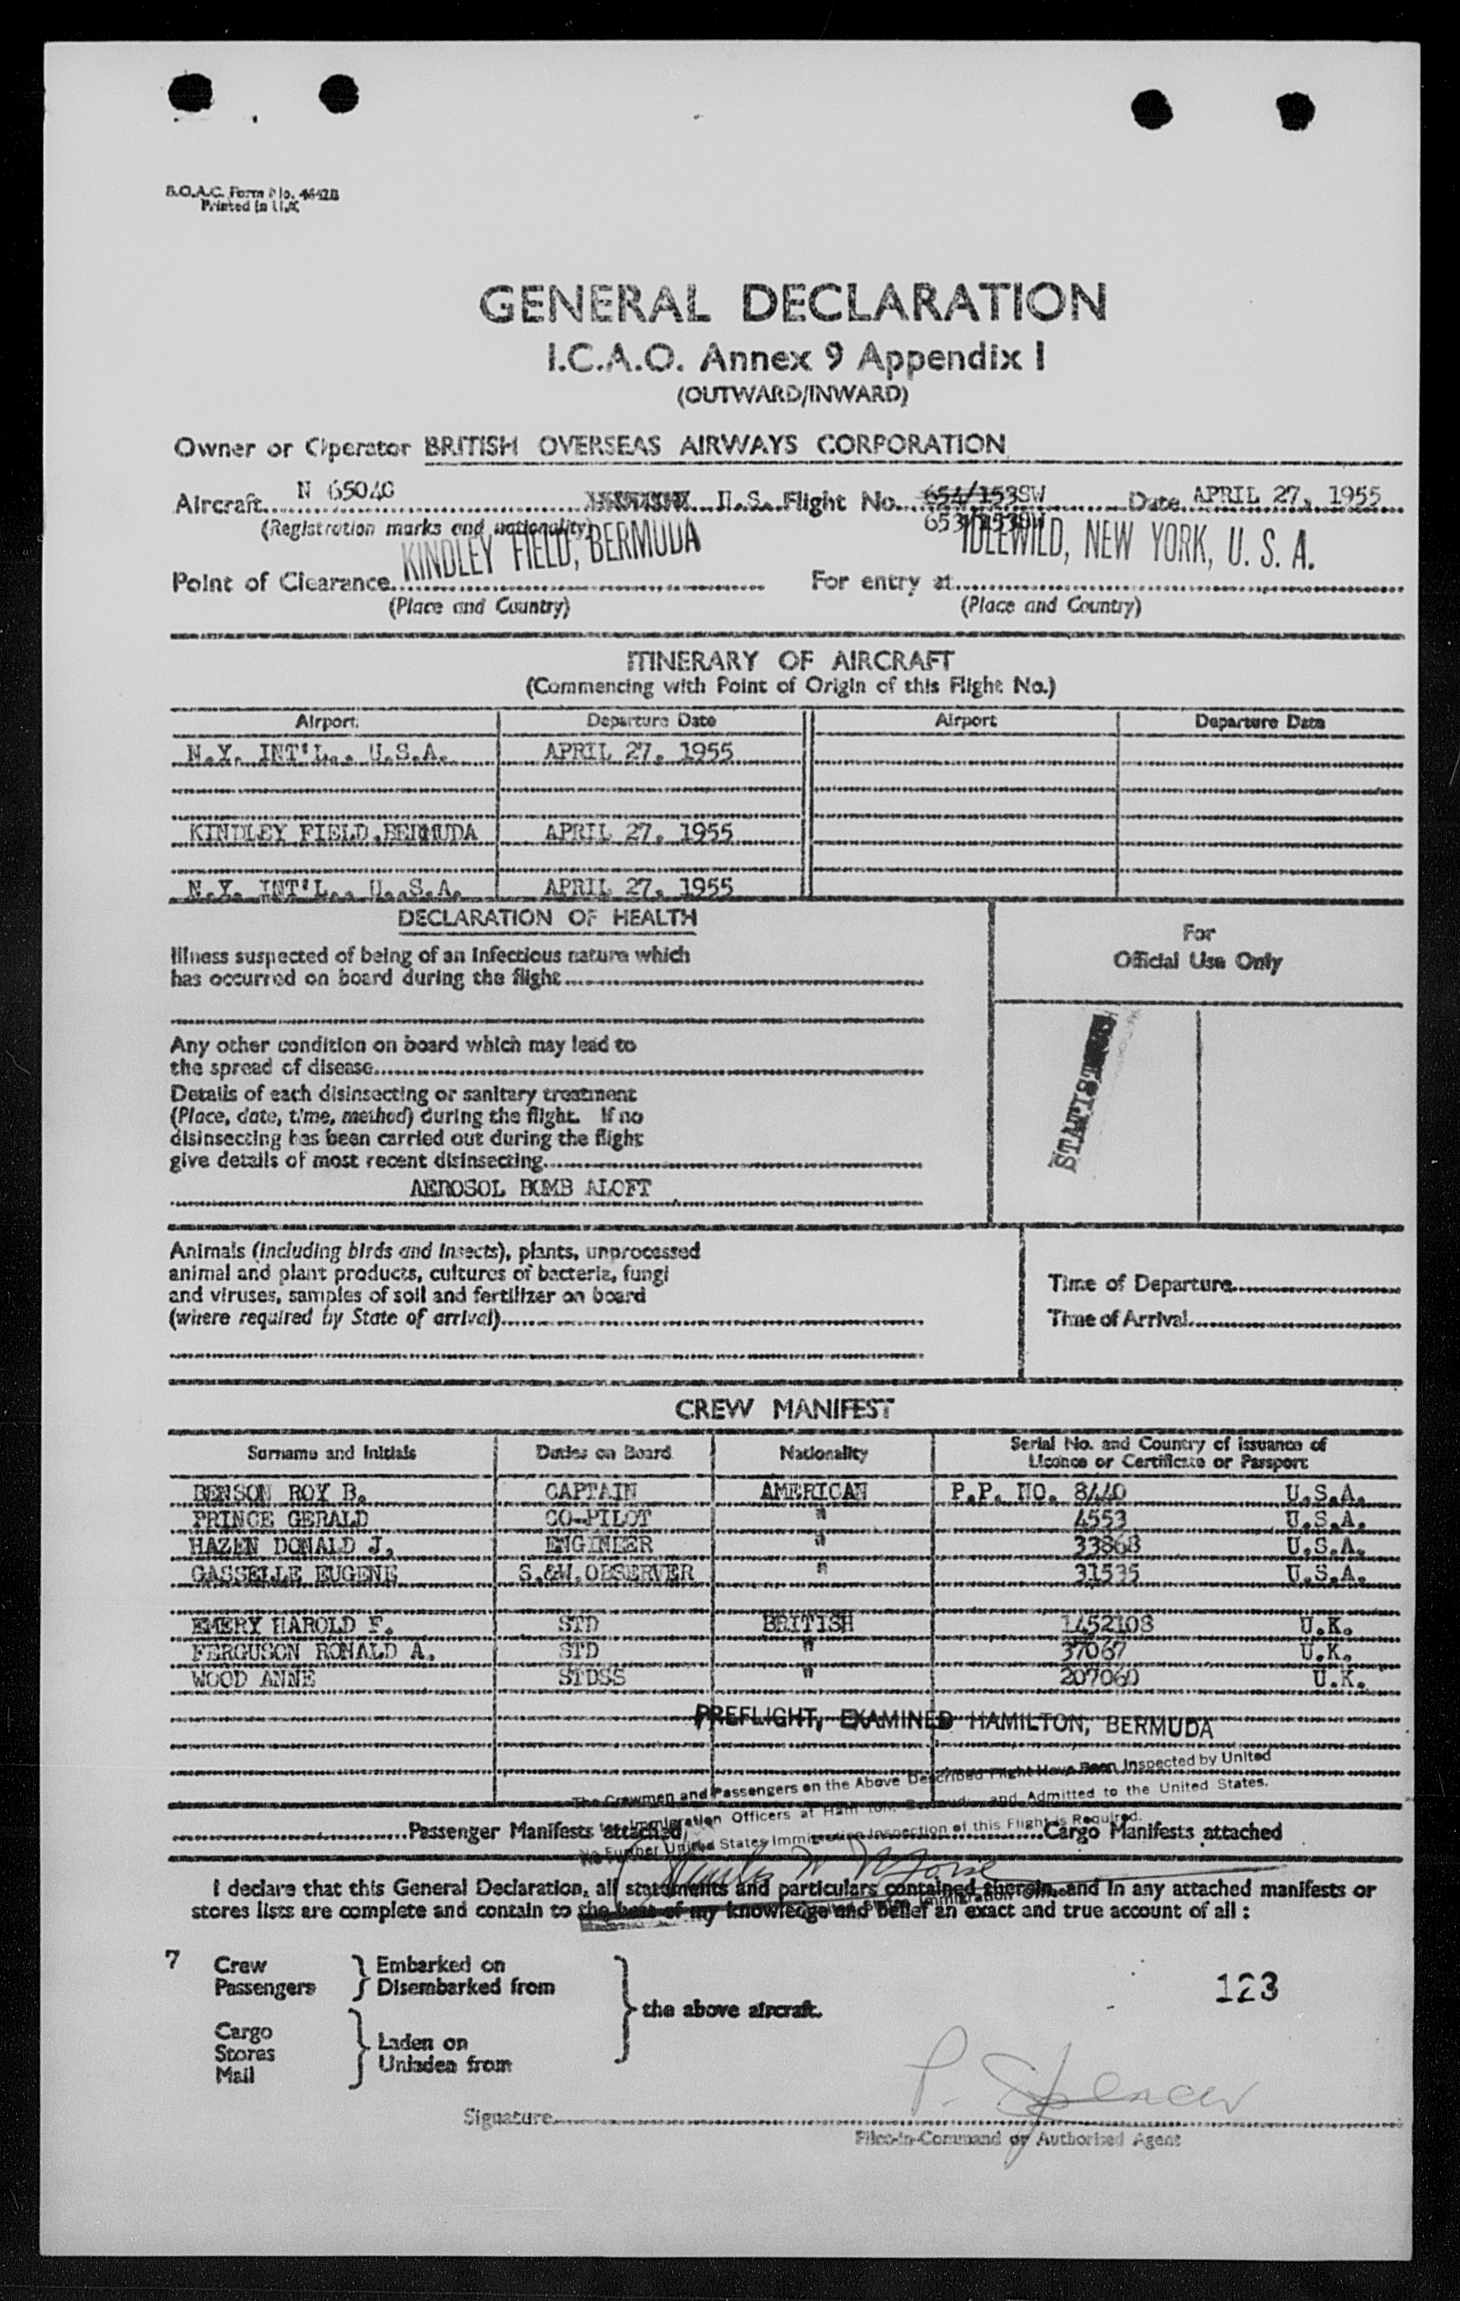 B.O.A.C. Form No.
Printed in U.K.
GENERAL DECLARATION
I.C.A.O. Annex 9 Appendix I
(OUTWARD/INWARD)
Owner or Operator BRITISH OVERSEAS AIRWAYS CORPORATION
Aircraft N 6504C U.S. Flight No. 654/153SW Date APRIL 27, 1955
(Registration marks and nationality) 653/153SW
KINDLEY FIELD, BERMUDA IDLEWILD, NEW YORK, U. S. A.
Point of Clearance For entry at
(Place and Country) (Place and Country)
ITINERARY OF AIRCRAFT
(Commencing with Point of Origin of this Flight No.)
Airport Departure Date Airport Departure Date
N.Y. INT'L., U.S.A. APRIL 27, 1955
KINDLEY FIELD, BERMUDA APRIL 27, 1955
N.Y. INT'L., U.S.A. APRIL 27, 1955
DECLARATION OF HEALTH
For
Official Use Only
Illness suspected of being of an infectious nature which
has occurred on board during the flight
Any other condition on board which may lead to
the spread of disease
Details of each disinsecting or sanitary treatment
(Place, date, time, method) during the flight. If no
disinsecting has been carried out during the flight
give details of most recent disinsecting
AEROSOL BOMB ALOFT
Animals (including birds and insects), plants, unprocessed
animal and plant products, cultures of bacteria, fungi
and viruses, samples of soil and fertilizer on board
(where required by State of arrival)
Time of Departure
Time of Arrival
CREW MANIFEST
Surname and Initials Duties on Board Nationality Serial No. and Country of issuance of
Licence or Certificate or Passport
BENSON ROY B. CAPTAIN AMERICAN P.P. NO. 8440 U.S.A.
PRINCE GERALD CO-PILOT " 4553 U.S.A.
HAZEN DONALD J. ENGINEER " 33868 U.S.A.
GASSELLE EUGENE S.&W. OBSERVER " 31535 U.S.A.
EMERY HAROLD F. STD BRITISH 1452108 U.K.
FERGUSON RONALD A. STD " 37067 U.K.
WOOD ANNE STDSS " 207060 U.K.
PREFLIGHT, EXAMINED HAMILTON, BERMUDA
The Crewmen and Passengers on the Above Described Flight Have Been Inspected by United
Immigration Officers at Hamilton, Bermuda, and Admitted to the United States.
No Further United States Immigration Inspection of this Flight is Required.
Passenger Manifests attached Cargo Manifests attached
I declare that this General Declaration, all statements and particulars contained therein, and in any attached manifests or
stores lists are complete and contain to the best of my knowledge and belief an exact and true account of all :
7 Crew Embarked on
Passengers Disembarked from
the above aircraft.
123
Cargo
Stores
Mail
Laden on
Unladen from
P. Spencer
Signature
Pilot-in-Command or Authorised Agent